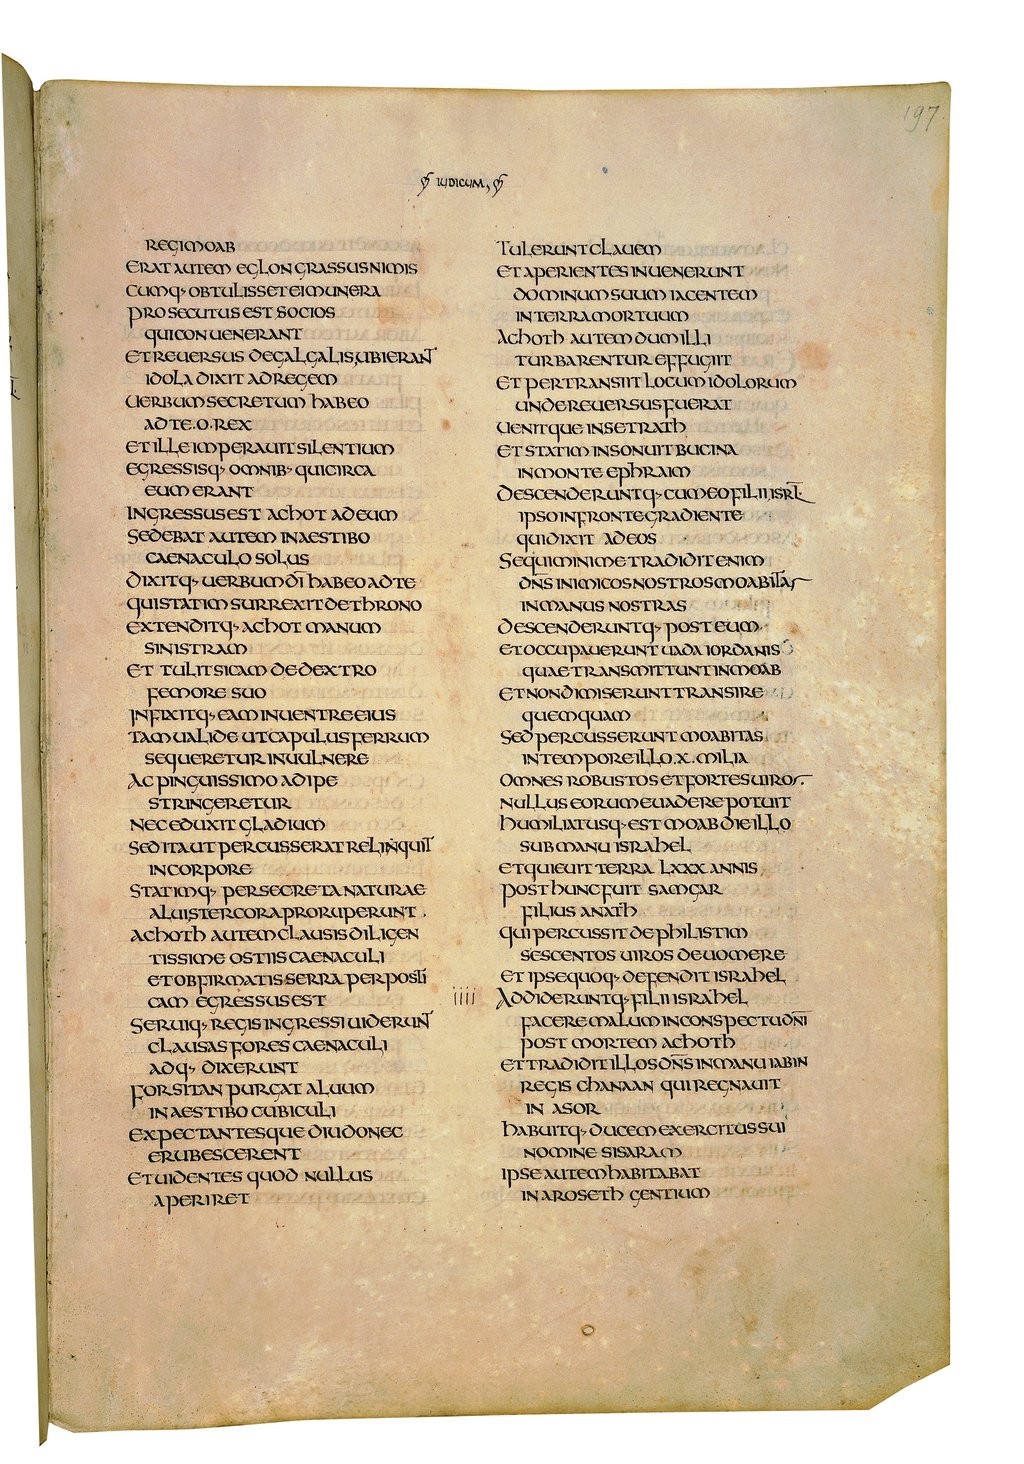 197
IUDICUM,
REGI MOAB
ERAT AUTEM EGLON GRASSUS NIMIS
CUMQ· OBTULISSET EI MUNERA
PROSECUTUS EST SOCIOS
QUI CONUENERANT
ET REUERSUS DE GALGALIS, UBI ERAN̄T
IDOLA DIXIT AD REGEM
UERBUM SECRETUM HABEO
AD TE·O·REX
ET ILLE IMPERAUIT SILENTIUM
EGRESSISQ· OMNIB· QUI CIRCA
EUM ERANT
INGRESSUS EST ACHOT AD EUM
SEDEBAT AUTEM IN AESTIBO
CAENACULO SOLUS
DIXITQ· UERBUM D̄I HABEO AD TE
QUI STATIM SURREXIT DE THRONO
EXTENDITQ· ACHOT MANUM
SINISTRAM
ET TULIT SICAM DE DEXTRO
FEMORE SUO
INFIXITQ· EAM IN UENTRE EIUS
TAM UALIDE UT CAPULUS FERRUM
SEQUERETUR IN UULNERE
AC PINGUISSIMO ADIPE
STRINGERETUR
NEC EDUXIT GLADIUM
SED ITA UT PERCUSSERAT RELINQUIT
IN CORPORE
STATIMQ· PER SECRETA NATURAE
ALUI STERCORA PRORUPERUNT
ACHOTH AUTEM CLAUSIS DILIGEN
TISSIME OSTIIS CAENACULI
ET OBFIRMATIS SERRA PER POSTI
CAM EGRESSUS EST
SERUIQ· REGIS INGRESSI UIDERUN̄T
CLAUSAS FORES CAENACULI
ADQ· DIXERUNT
FORSITAN PURGAT ALUUM
IN AESTIBO CUBICULI
EXPECTANTESQUE DIU DONEC
ERUBESCERENT
ET UIDENTES QUOD NULLUS
APERIRET
TULERUNT CLAUEM
ET APERIENTES INUENERUNT
DOMINUM SUUM IACENTEM
IN TERRA MORTUUM
ACHOTH AUTEM DUM ILLI
TURBARENTUR EFFUGIIT
ET PERTRANSIIT LOCUM IDOLORUM
UNDE REUERSUS FUERAT
UENITQUE IN SETRATH
ET STATIM INSONUIT BUCINA
IN MONTE EPHRAIM
DESCENDERUNTQ· CUM EO FILII ISRL̄
IPSO IN FRONTE GRADIENTE
QUI DIXIT AD EOS
SEQUIMINI ME TRADIDIT ENIM
DN̄S INIMICOS NOSTROS MOABITAS
IN MANUS NOSTRAS
DESCENDERUNTQ· POST EUM
ET OCCUPAUERUNT UADA IORDANIS
QUAE TRANSMITTUNT IN MOAB
ET NON DIMISERUNT TRANSIRE
QUEMQUAM
SED PERCUSSERUNT MOABITAS
IN TEMPORE ILLO·X·MILIA
OMNES ROBUSTOS ET FORTES UIROS
NULLUS EORUM EUADERE POTUIT
HUMILIATUSQ· EST MOAB DIE ILLO
SUB MANU ISRAHEL
ET QUIEUIT TERRA LXXX ANNIS
POST HUNC FUIT SAMGAR
FILIUS ANATH
QUI PERCUSSIT DE PHILISTIM
SESCENTOS UIROS DE UOMERE
ET IPSE QUOQ· DEFENDIT ISRAHEL
IIII ADDIDERUNTQ· FILII ISRAHEL
FACERE MALUM IN CONSPECTU DN̄I
POST MORTEM ACHOTH
ET TRADIDIT ILLOS DN̄S IN MANU IABIN
REGIS CHANAAN QUI REGNAUIT
IN ASOR
HABUITQ· DUCEM EXERCITUS SUI
NOMINE SISARAM
IPSE AUTEM HABITABAT
IN AROSETH GENTIUM